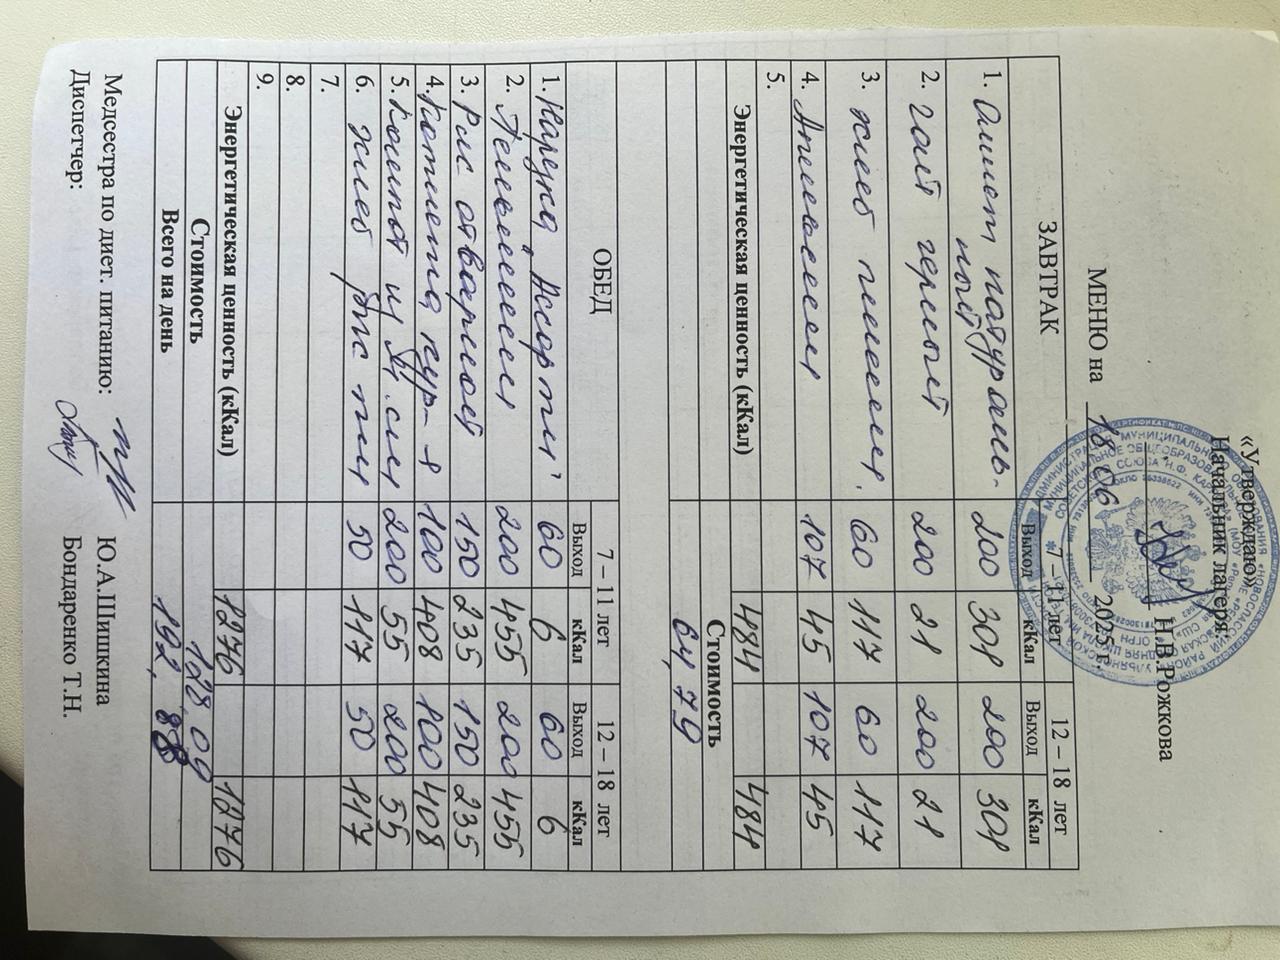 «Утверждаю»
Начальник лагеря:
Н.В.Рожкова
МЕНЮ на 18.06 2025 г.
ЗАВТРАК 7 – 11 лет 12 – 18 лет
Выход кКал Выход кКал
1. Омлет натураль-
ный 200 301 200 301
2. Чай черный 200 21 200 21
3. хлеб пшенич. 60 117 60 117
4. Апельсин 107 45 107 45
5.
Энергетическая ценность (кКал) 484 484
Стоимость
64,79
ОБЕД 7 – 11 лет 12 – 18 лет
Выход кКал Выход кКал
1. Нарезка "Ассорти" 60 6 60 6
2. Пельмени 200 455 200 455
3. Рис отварной 150 235 150 235
4. Котлета кур-я 100 408 100 408
5. Компот из 200 55 200 55
6. хлеб рж. пш 50 117 50 117
7.
8.
9.
Энергетическая ценность (кКал) 1276 1276
Стоимость 128,09
Всего на день 192,88
Медсестра по диет. питанию: Ю.А.Шишкина
Диспетчер: Бондаренко Т.Н.